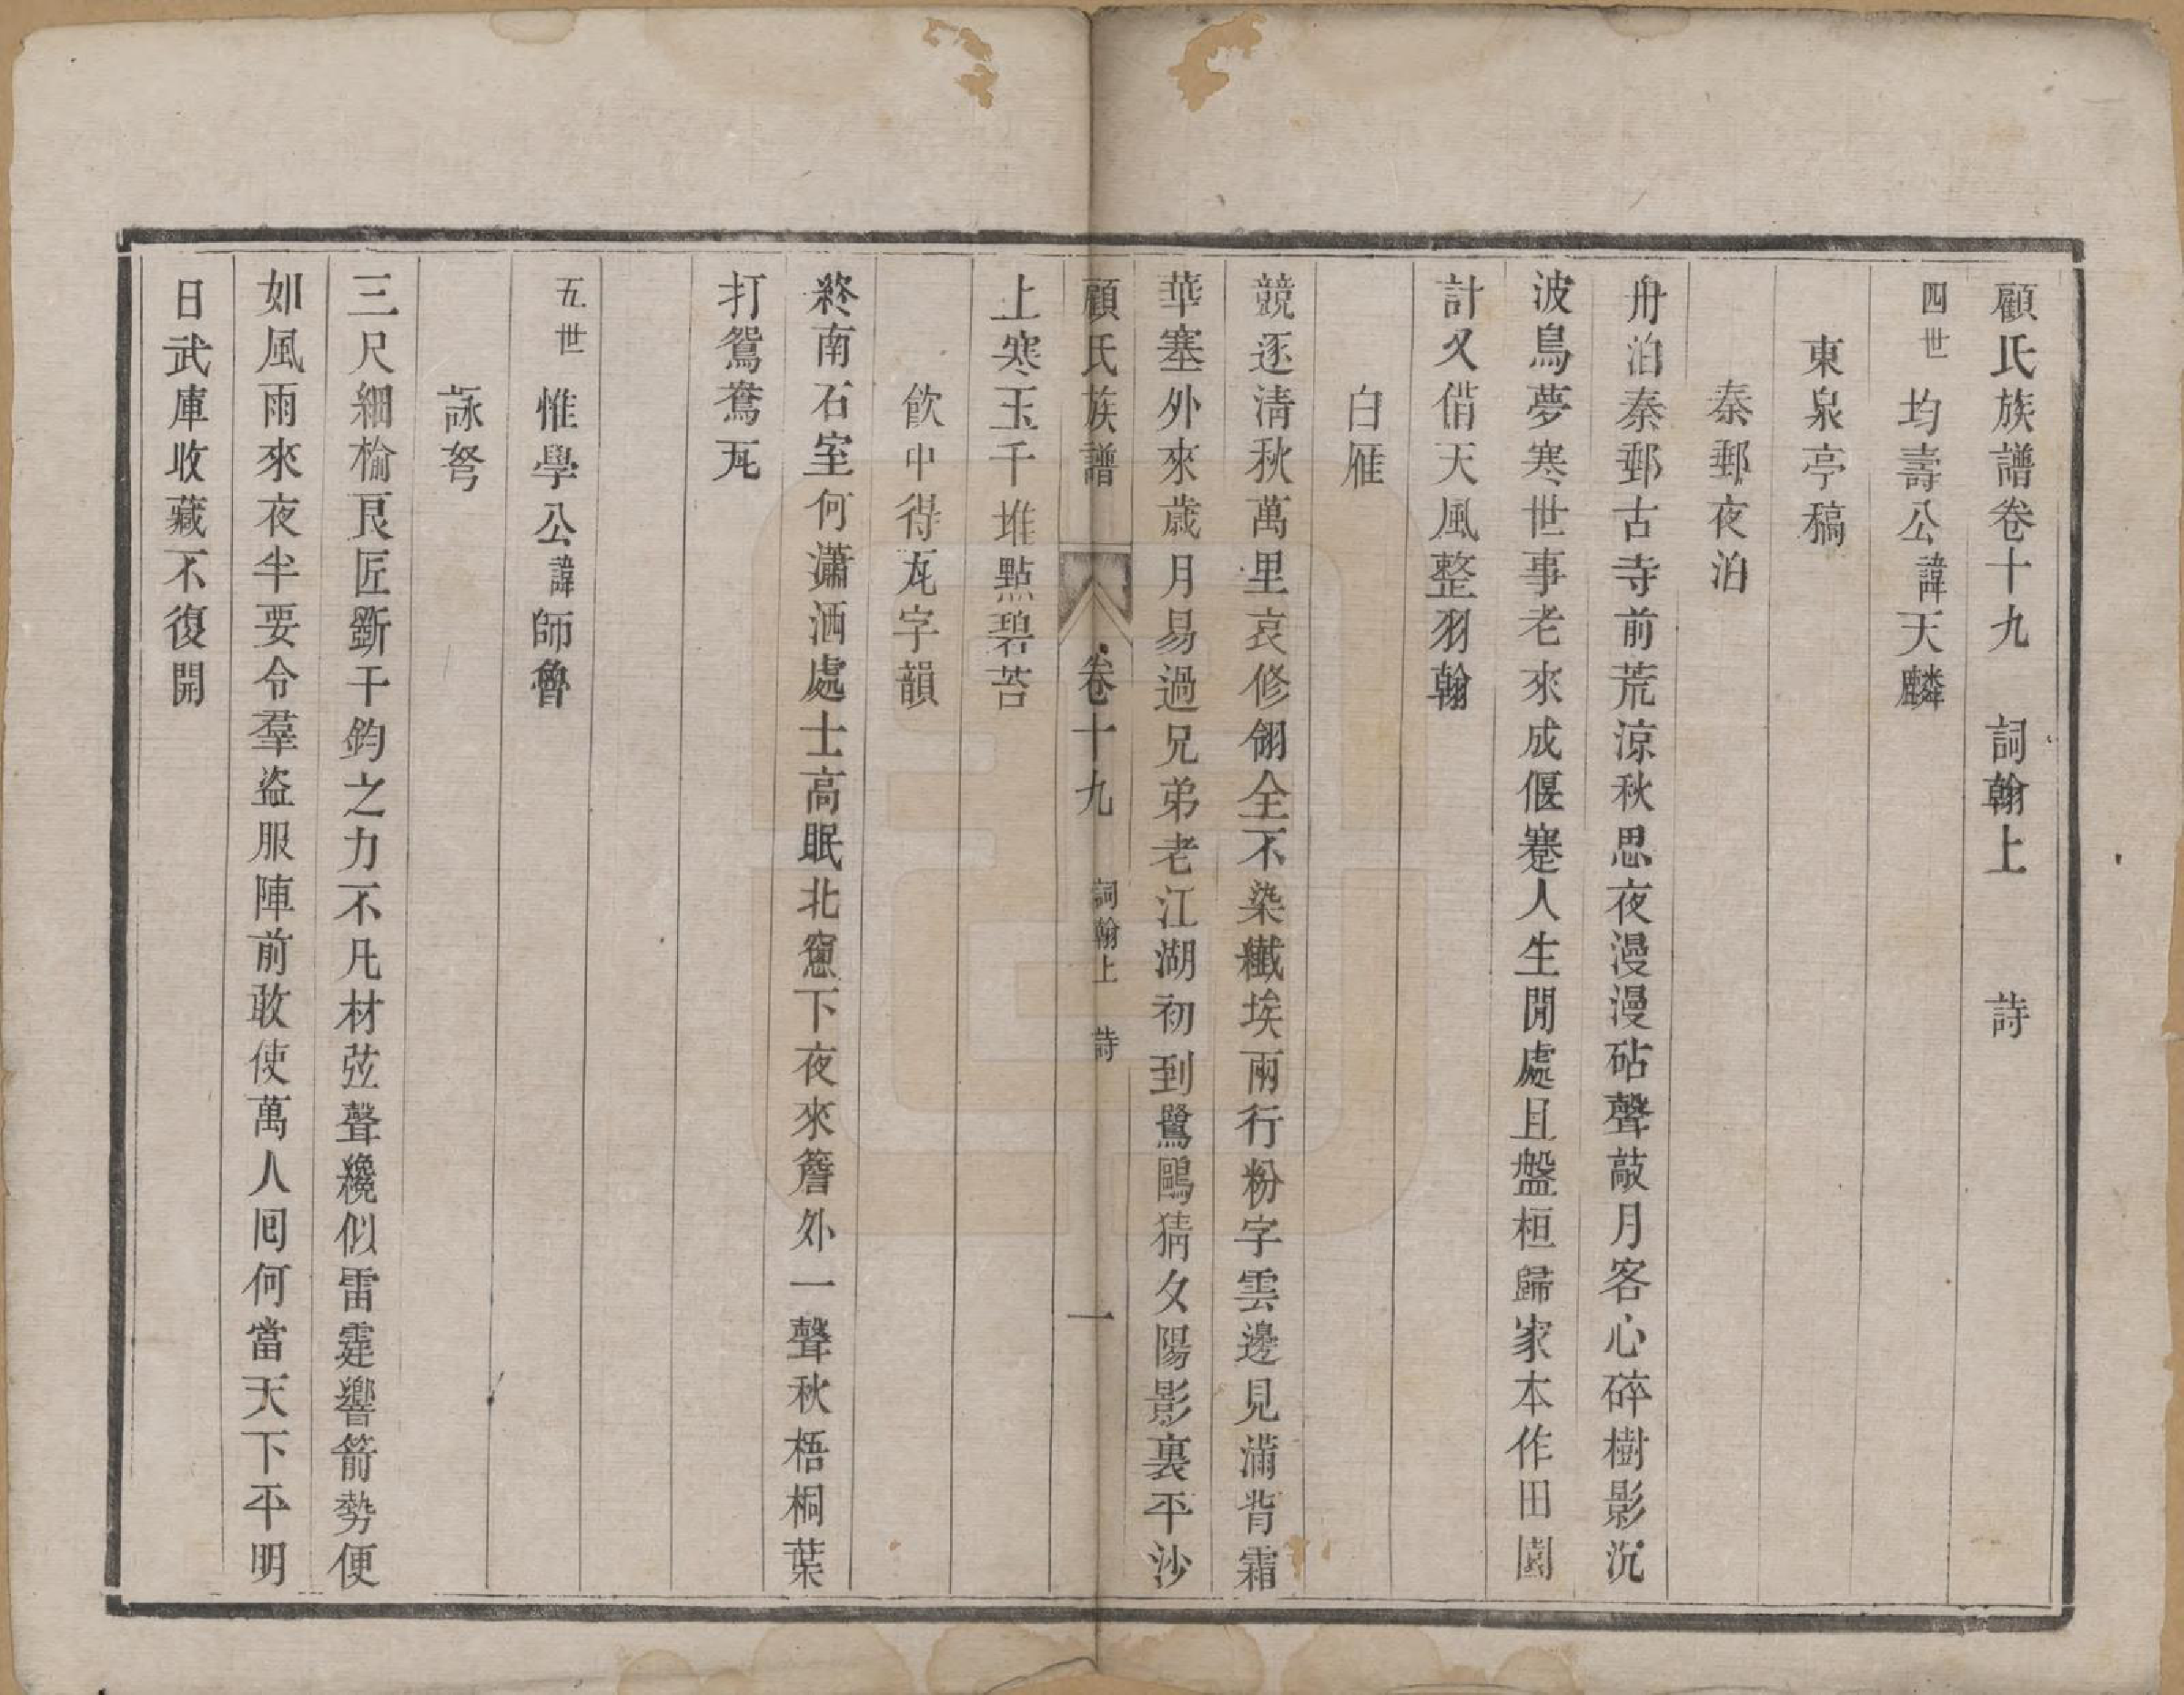 顧氏族譜卷十九　詞翰上　　詩
四世　均壽公諱天麟
東泉亭稿
秦郵夜泊
舟泊秦郵古寺前荒涼秋思夜漫漫砧聲敲月客心碎樹影沉
波鳥夢寒世事老來成偃蹇人生閒處且盤桓歸家本作田園
計又借天風整羽翰
白雁
競逐清秋萬里哀修翎全不染纖埃兩行粉字雲邊見滿背霜
華塞外來歲月易過兄弟老江湖初到鷺鷗猜夕陽影裏平沙
顧氏族譜　卷十九　詞翰上　詩　一
上寒玉千堆點碧苔
飲中得瓦字韻
終南石室何瀟洒處士高眠北窻下夜來簷外一聲秋梧桐葉
打鴛鴦瓦
五世　惟學公諱師魯
詠弩
三尺細楡良匠斲千鈞之力不凡材弦聲纔似雷霆響箭勢便
如風雨來夜半要令羣盜服陣前敢使萬人囘何當天下平明
日武庫收藏不復開